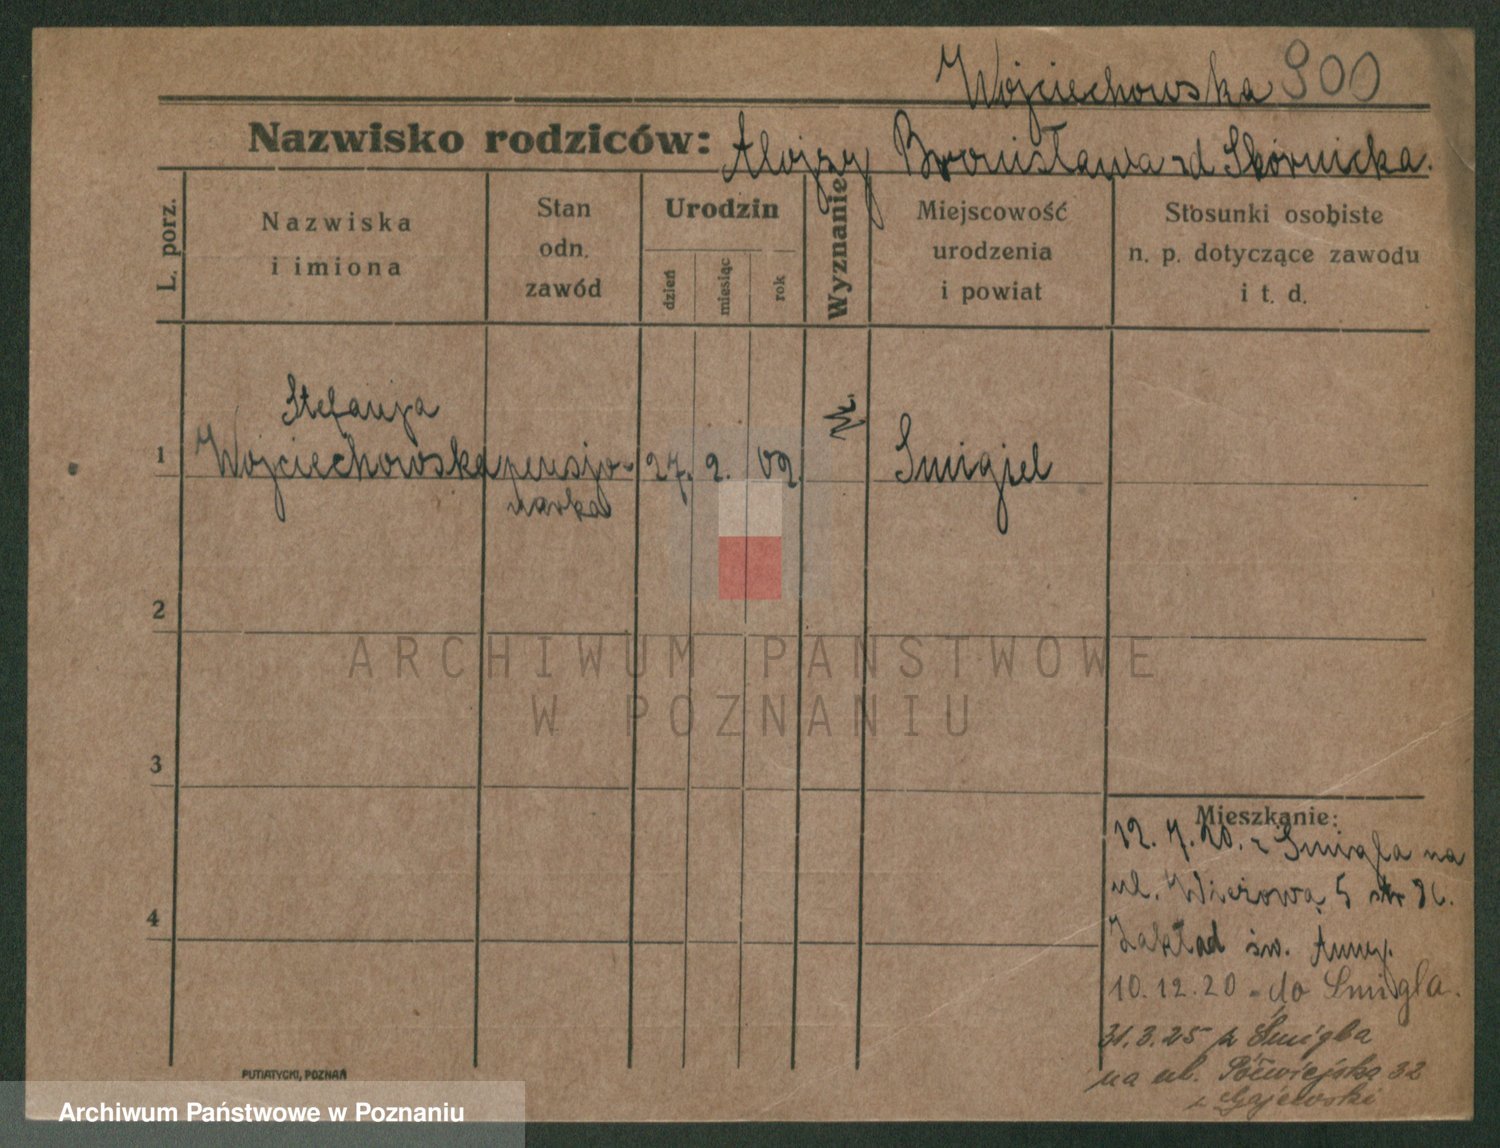 Wojciechowska 900
Nazwisko rodziców: Alojzy Bronisława zd Skórnicka.
L. porz.
Nazwiska
i imiona
Stan
odn.
zawód
Urodzin
dzień
miesiąc
rok
Wyznanie
Miejscowość
urodzenia
i powiat
Stosunki osobiste
n. p. dotyczące zawodu
i t. d.
Stefanja
1 Wojciechowska pensjo- 27. 2. 02. Smigiel
narka
2
3
4
ARCHIWUM PAŃSTWOWE
W POZNANIU
Mieszkanie:
12. 7. 20. z Smigla na
ul. Wieżową 5
Zakład św. Anny.
10.12.20 - do Smigla.
31.3.25 z Śmigla
na ul. Półwiejska 32
Gajewski
PUTIATYCKI, POZNAŃ
Archiwum Państwowe w Poznaniu